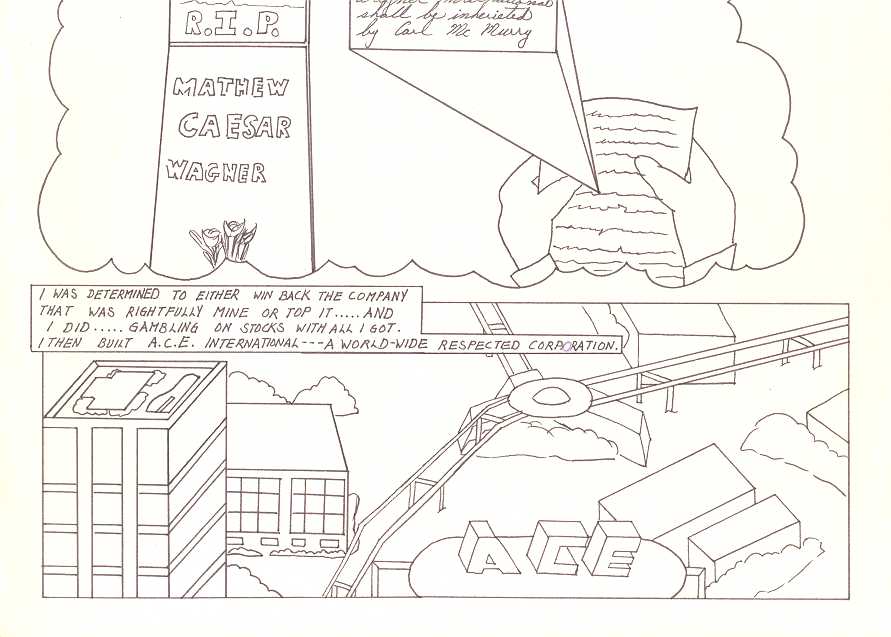 R.I.P.
shall be inherieted
by Carl Mc Murry
MATHEW
CAESAR
WAGNER
I WAS DETERMINED TO EITHER WIN BACK THE COMPANY
THAT WAS RIGHTFULLY MINE OR TOP IT.....AND
I DID..... GAMBLING ON STOCKS WITH ALL I GOT.
I THEN BUILT A.C.E. INTERNATIONAL---A WORLD-WIDE RESPECTED CORPORATION.
ACE